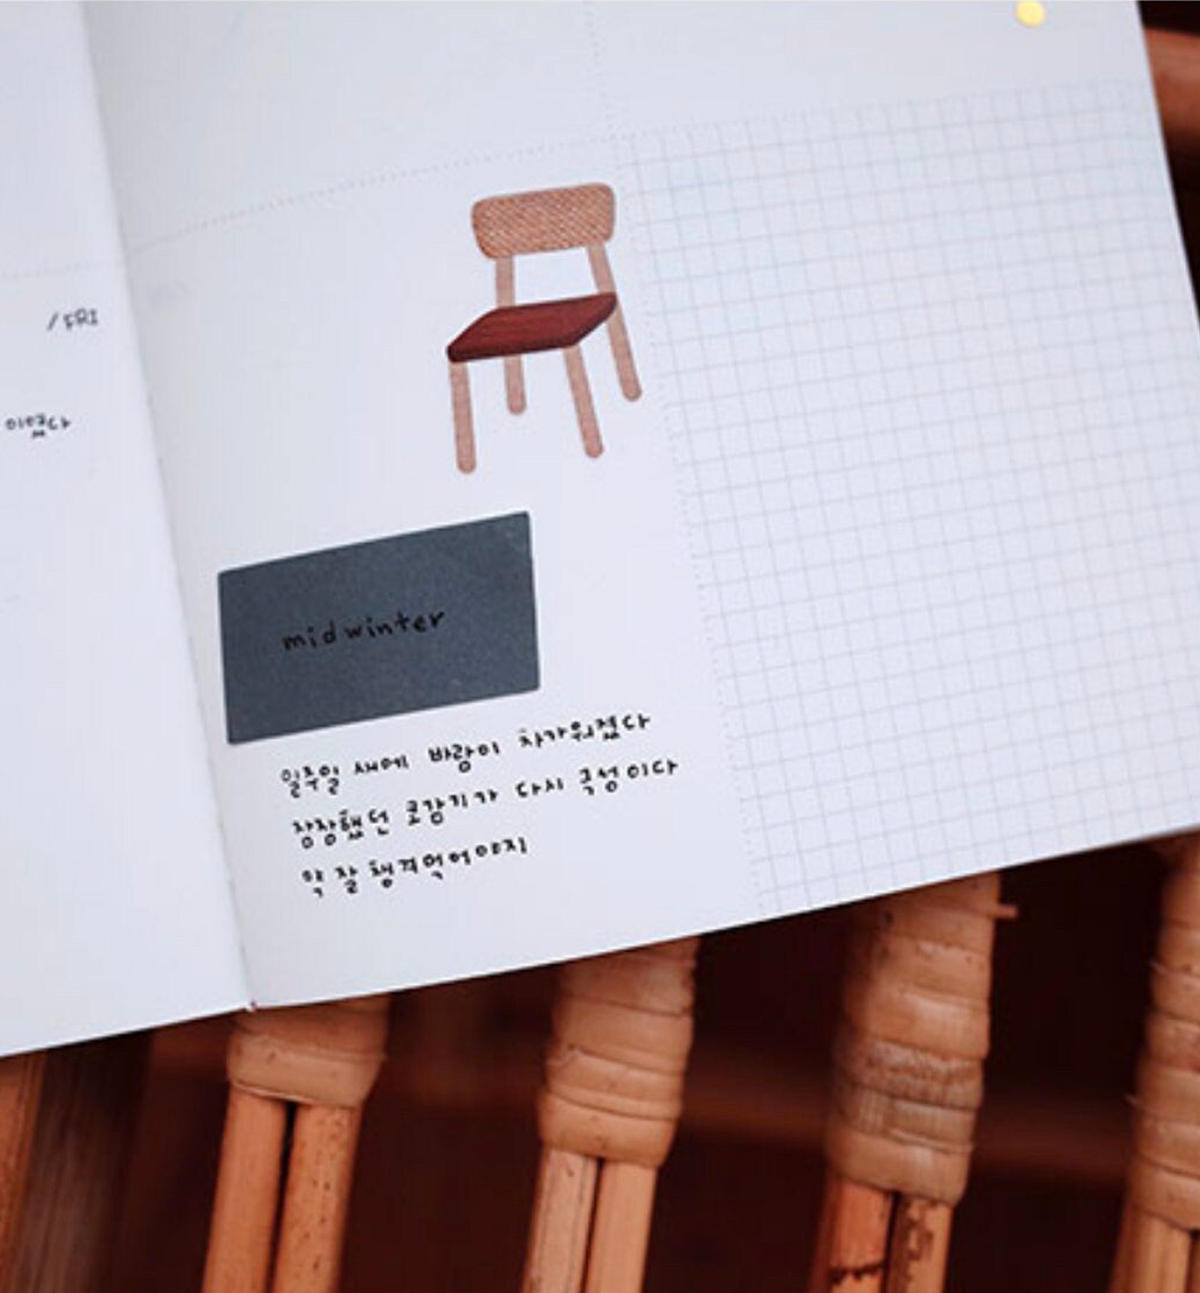 /FRI
이었다
midwinter
일주일 새에 바람이 차가워졌다
잠잠했던 코감기가 다시 극성이다
약 잘 챙겨먹어야지